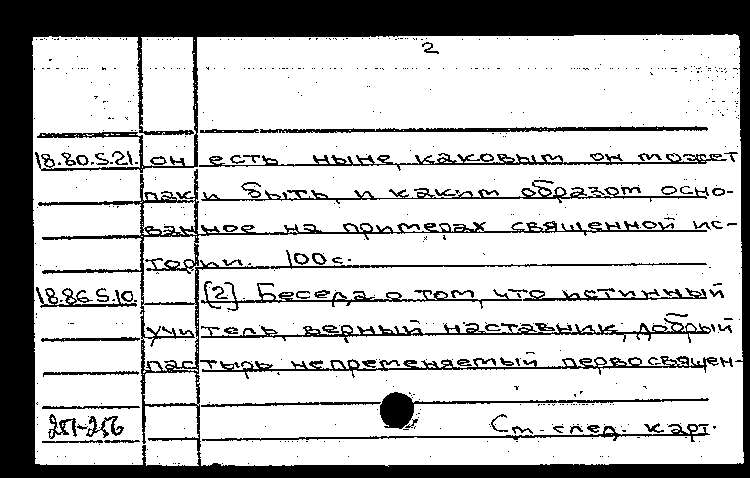 2
18.80.5.21. он есть ныне, каковым он может
паки быть, и каким образом, осно-
ванное на примерах священной ис-
тории. 100с.
18.86.5.10. [2]. Беседа о том, что истинный
учитель, верный наставник, добрый
пастырь, непременяемый первосвящен-
251-256 См. след. карт.